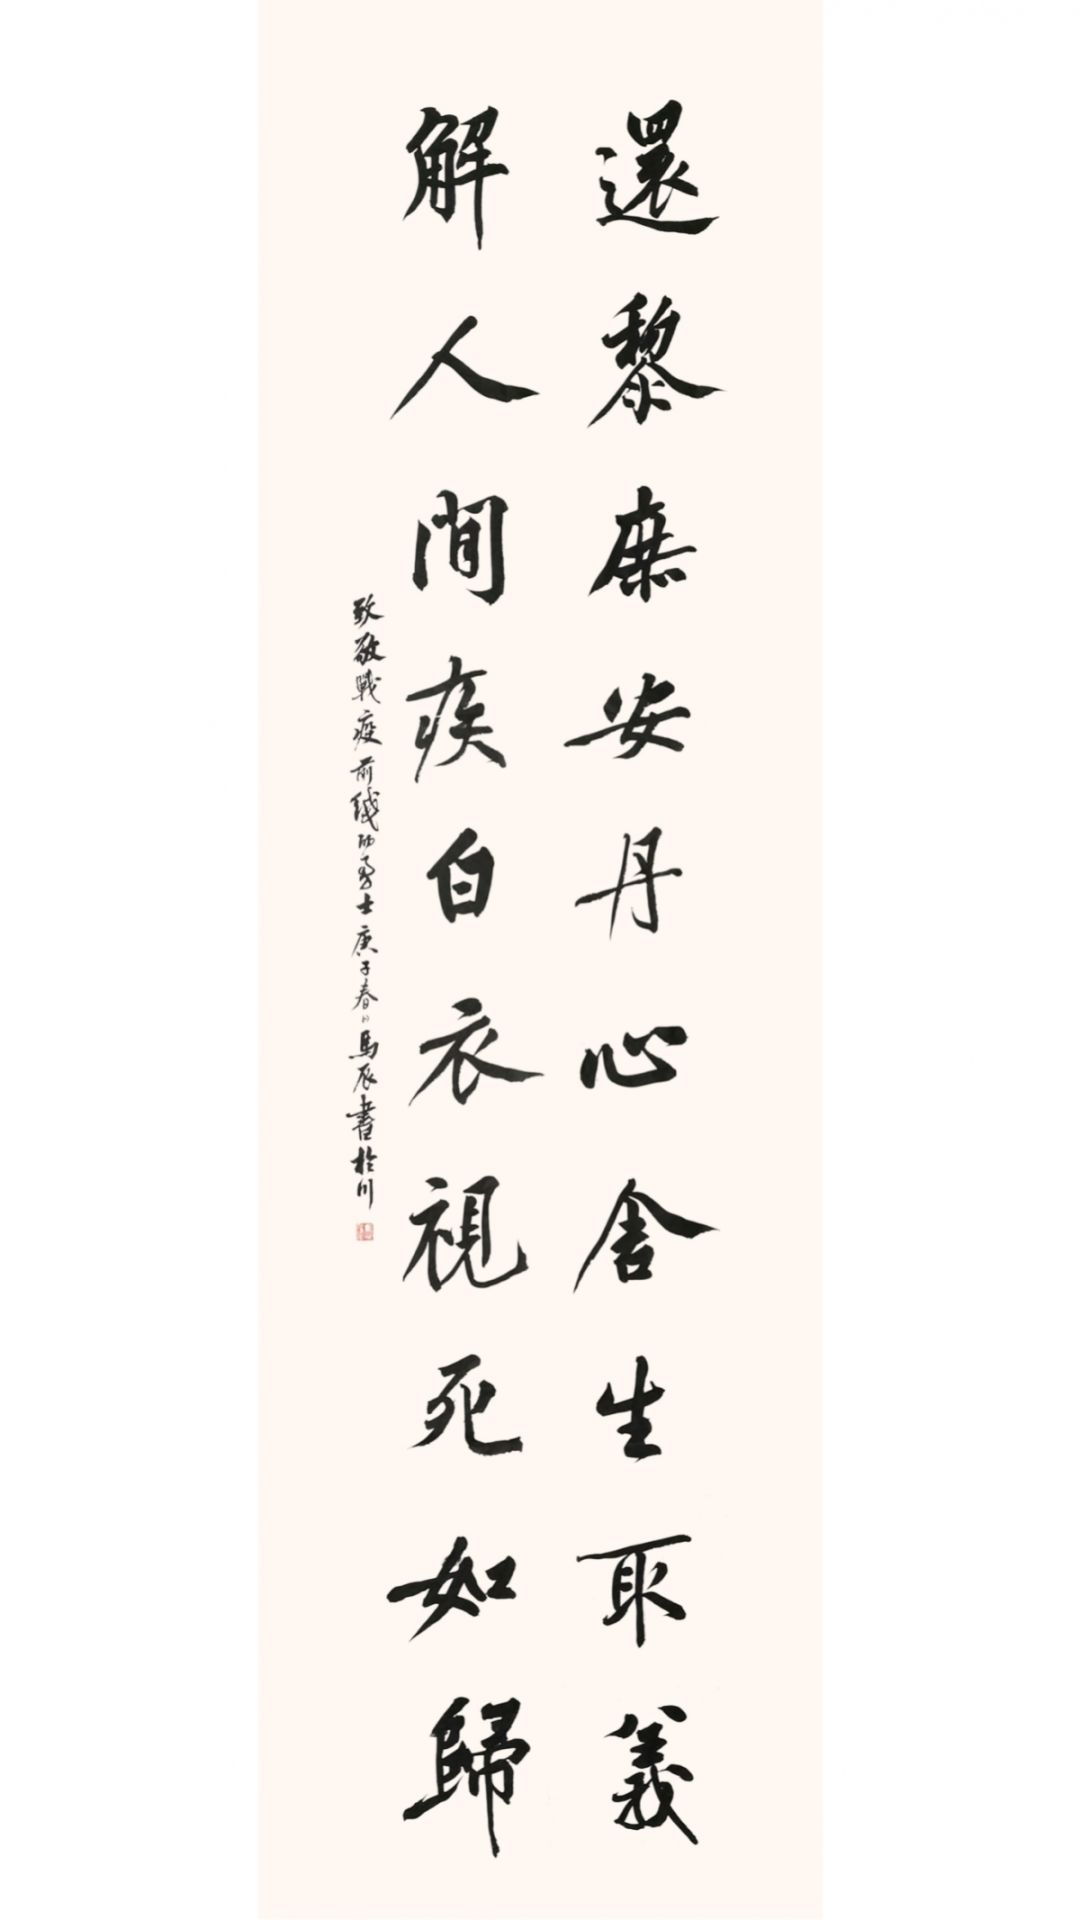 還黎庶安丹心舍生取義
解人間疾白衣視死如歸
致敬戰疫前綫的勇士庚子春日馬辰書於川